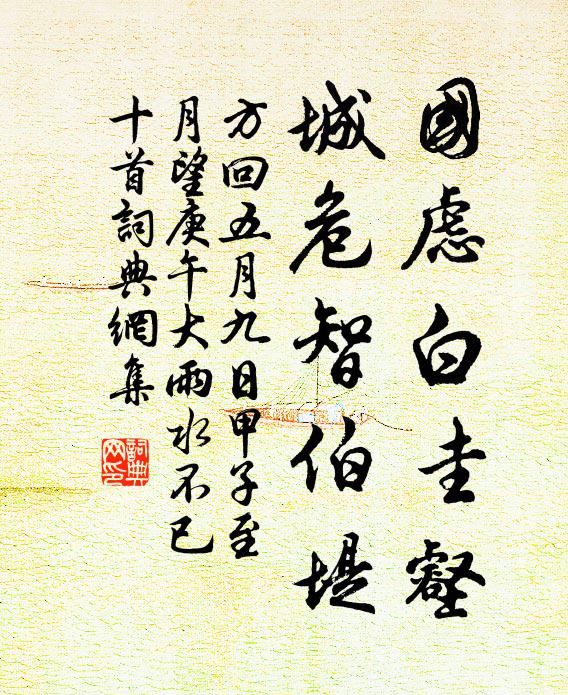 國虑白圭壑
城危智伯堤
方回五月九日甲子至
月望庚午大雨水不已
十首詞典網集
詞典網印